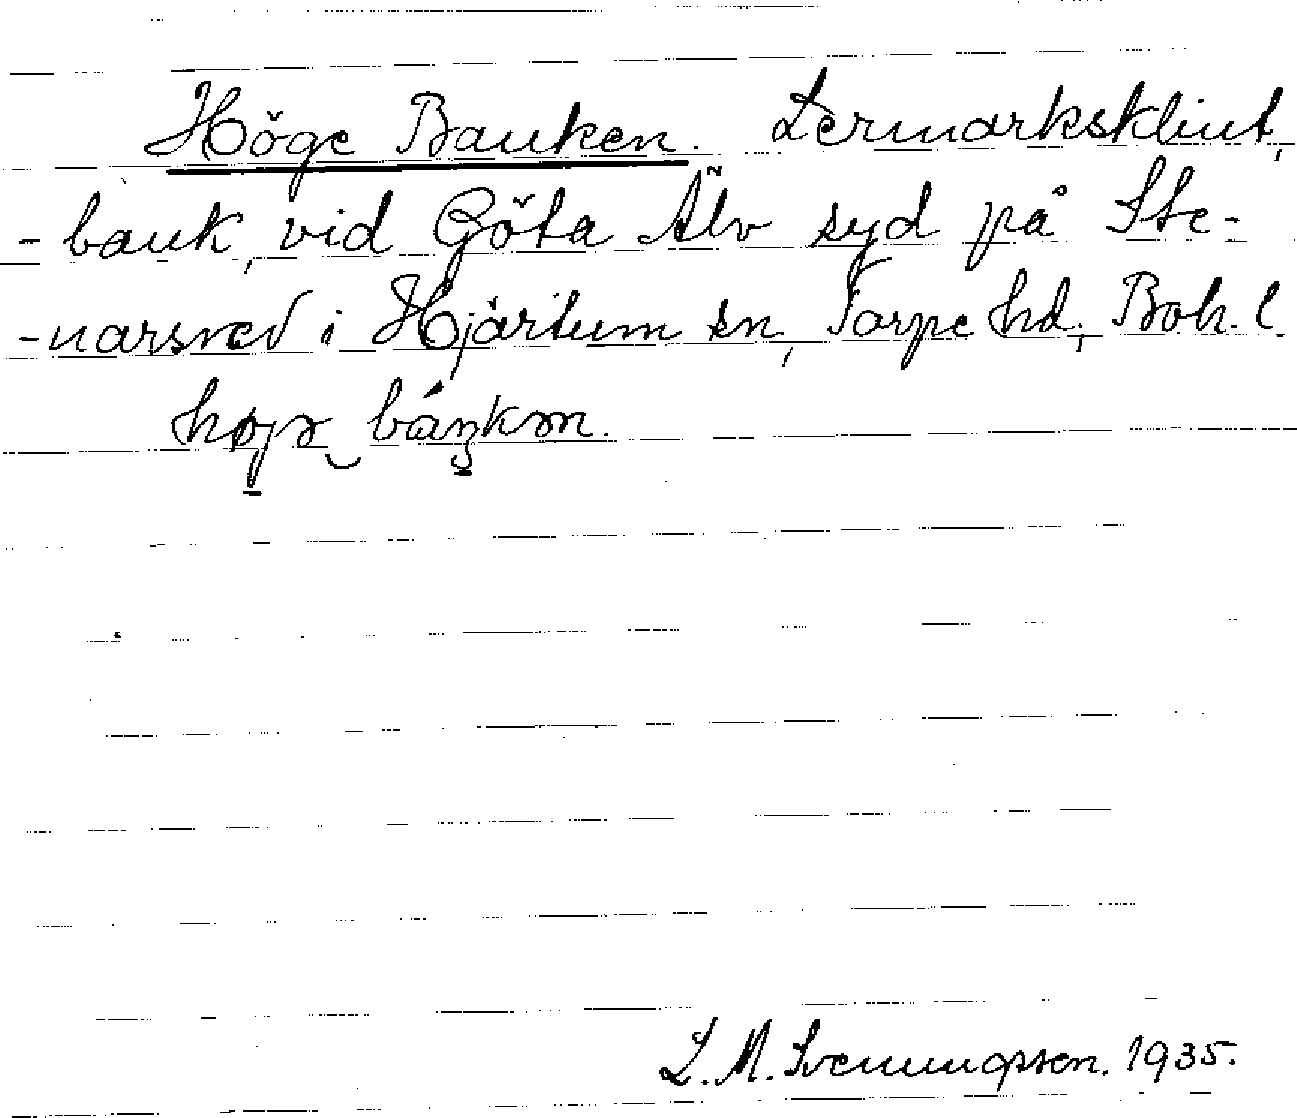 Höge Banken. Lermarksklint,
-bank, vid Göta Älv syd på Ste-
-narsred i Hjärtum sn, Torpe hd, Boh. l.
L. M. Svenungsson. 1935.